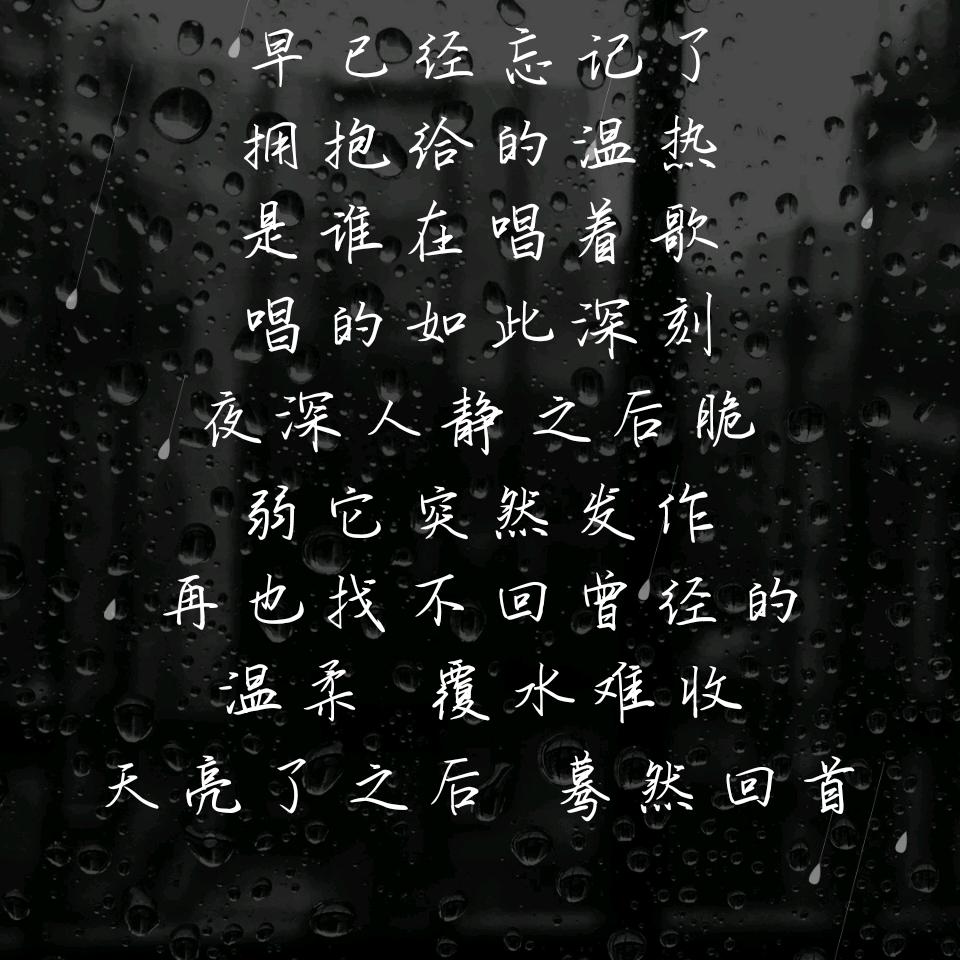 早已经忘记了
拥抱给的温热
是谁在唱着歌
唱的如此深刻
夜深人静之后脆
弱它突然发作
再也找不回曾经的
温柔 覆水难收
天亮了之后 蓦然回首